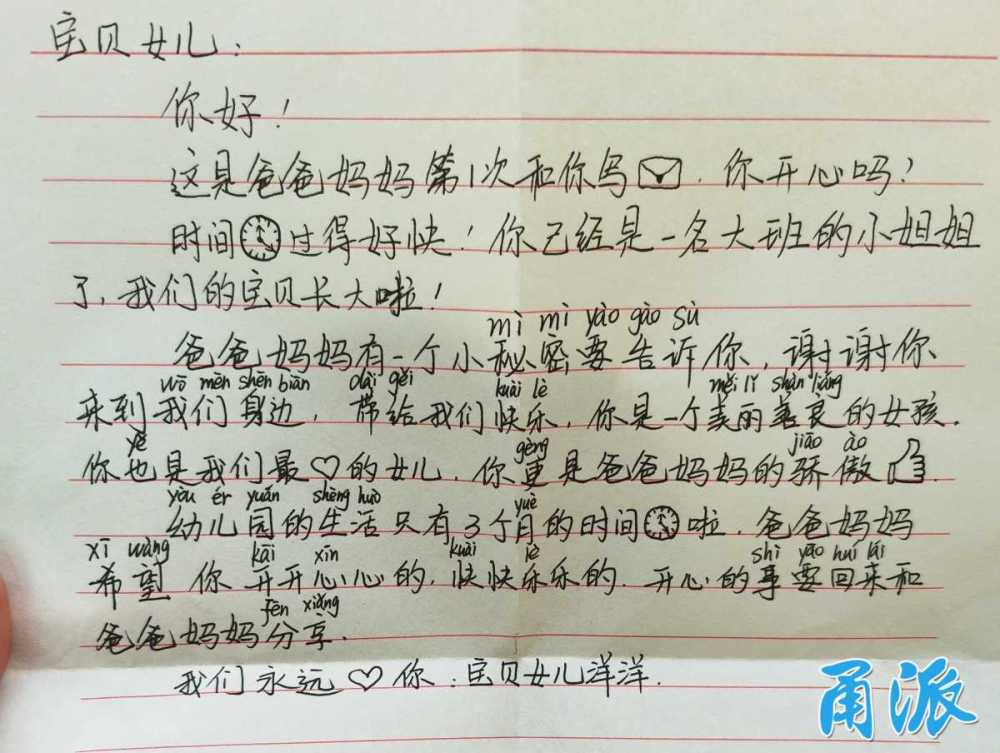 宝贝女儿：
你好！
这是爸爸妈妈第1次和你写✉．你开心吗？
时间🕓过得好快！你已经是一名大班的小姐姐
了，我们的宝贝长大啦！
mì mì yào gào sù
爸爸妈妈有一个小秘密要告诉你，谢谢你
wǒ mēn shēn biān dài gěi kuài lè měi lì shàn liáng
来到我们身边，带给我们快乐，你是一个美丽善良的女孩．
yě gèng jiāo ào
你也是我们最♡的女儿．你更是爸爸妈妈的骄傲👍．
yòu ér yuán shēng huó yuè
幼儿园的生活只有3个月的时间🕓啦．爸爸妈妈
xī wàng kāi xīn kuài lè shì yāo huí lái
希望你开开心心的，快快乐乐的．开心的事要回来和
fēn xiǎng
爸爸妈妈分享．
我们永远♡你：宝贝女儿洋洋．
甬派